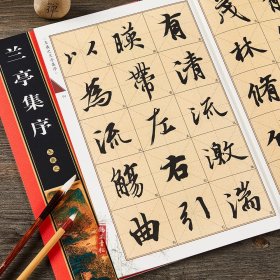 兰亭集序
茂林脩
有清流激湍
暎帶左右引
以為流觴曲